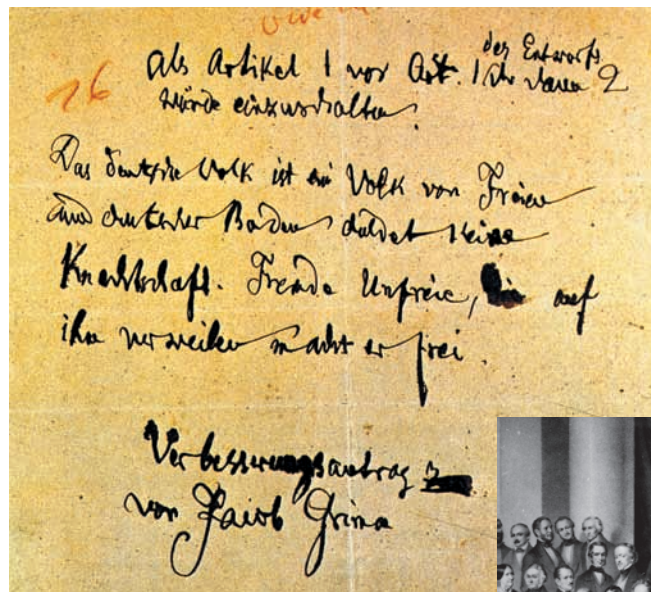 16
des Entwurfs
als Artikel 1 vor Art. 1 der dann 2
würde einzuschalten:
Das deutsche Volk ist ein Volk von Freien
und deutscher Boden duldet keine
Knechtschaft. Fremde Unfreie, die auf
ihm verweilen macht er frei.
Verbesserungsantrag
von Jacob Grimm